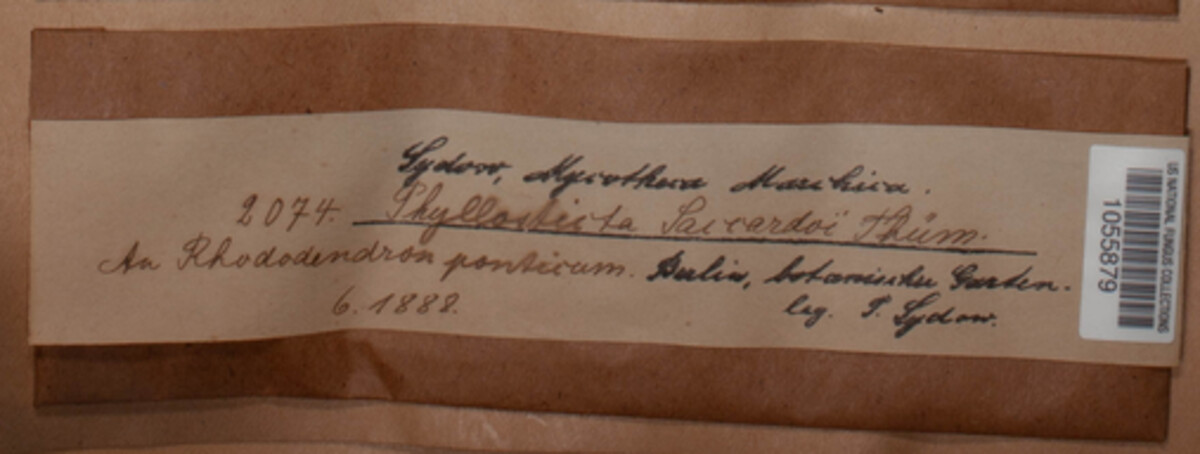 Sydow, Mycotheca Marchica.
2074. Phyllosticta Saccardoi Thüm.
An Rhododendron ponticum. Berlin, botanischer Garten.
6. 1888. leg. P. Sydow.
US NATIONAL FUNGUS COLLECTIONS
1055879